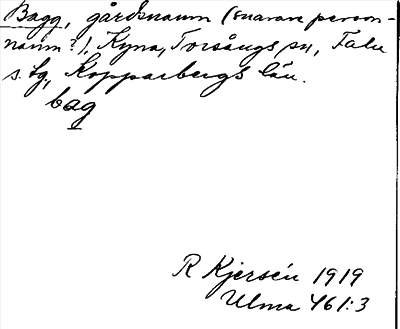 Bagg, gårdsnamn (snarare person-
namn?), Kyna, Torsångs sn, Falu
s. tg, Kopparbergs län.
bag
R Kjersén 1919
Ulma 461:3